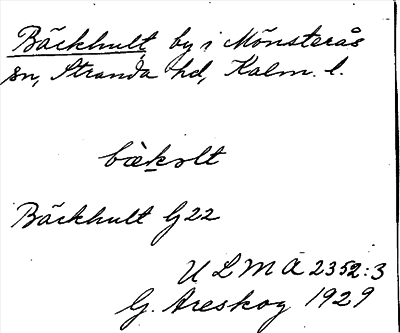 Bäckhult by i Mönsterås
sn, Stranda hd, Kalm. l.
bèkolt
Bäckhult G22
ULMA 2352:3
G. Areskog 1929